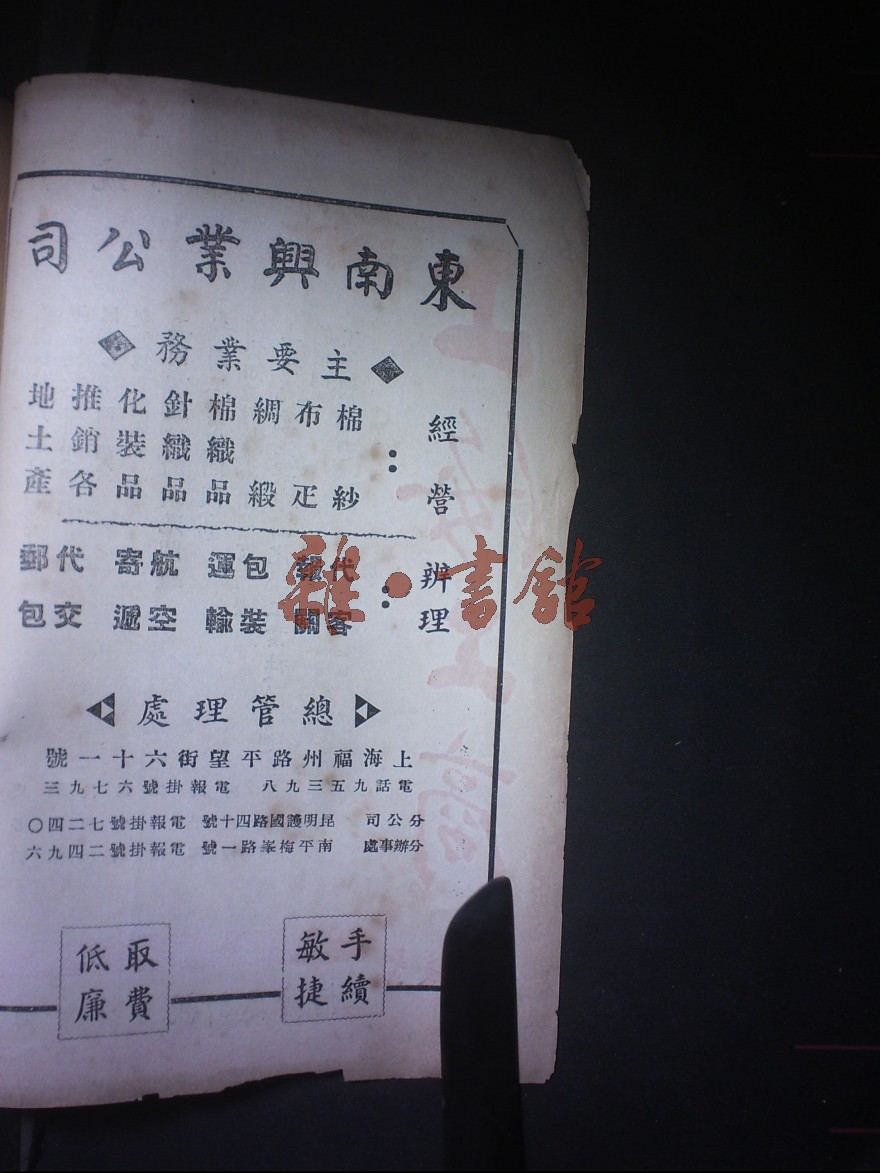 東南興業公司
主要業務
經營：
棉紗
布疋
綢緞
棉織品
針織品
化裝品
推銷各
地土產
辨理：
代客
報關
包裝
運輸
航空
寄遞
代交
郵包
總管理處
上海福州路平望街六十一號
電話九五三九八 電報掛號六七九三
分公司 昆明護國路四十號 電報掛號七二四〇
分辦事處 南平梅峯路一號 電報掛號二四九六
手續
敏捷
取費
低廉
雜·書館